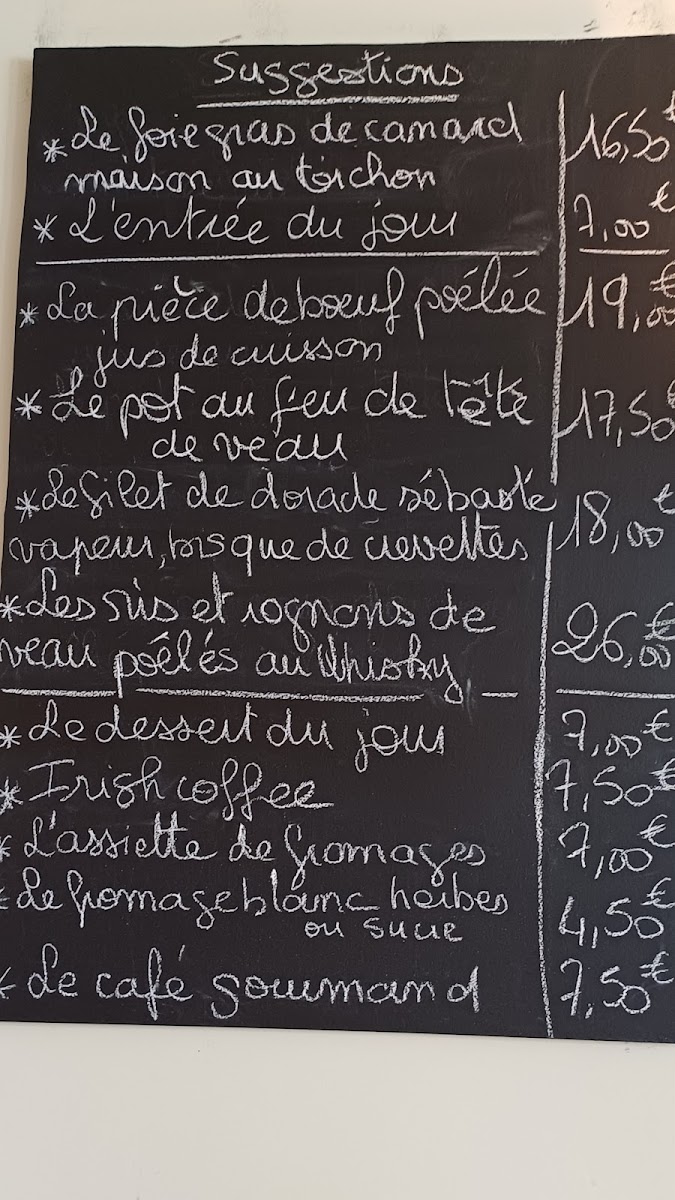 Suggestions
* Le foie gras de canard 16,50€
maison au torchon
* L'entrée du jour 7,00€
* La pièce de boeuf poêlée 19,00€
jus de cuisson
* Le pot au feu de tête 17,50€
de veau
* Le filet de dorade sébaste 18,00€
vapeur, bisque de crevettes
* Les ris et rognons de 26,00€
veau poêlés au Whisky
* Le dessert du jour 7,00€
* Irish coffee 7,50€
* L'assiette de fromages 7,00€
* Le fromage blanc herbes 4,50€
ou sucre
* Le café gourmand 7,50€